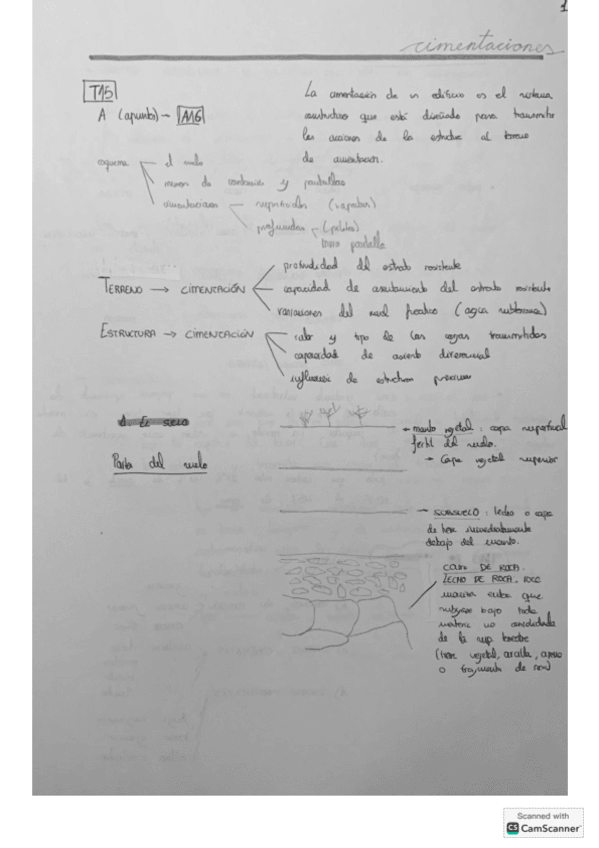 1
cimentaciones
T15
A (apuntes) - A16
La cimentación de un edificio es el sistema
constructivo que está diseñado para transmitir
las acciones de la estructura al terreno
de cimentación.
esquema
el suelo
muros de contención y pantallas
cimentaciones
superficiales (zapatas)
profundas (pilotes)
muro pantalla
TERRENO → CIMENTACIÓN
profundidad del estrato resistente
capacidad de asentamiento del estrato resistente
variaciones del nivel freático (agua subterránea)
ESTRUCTURA → CIMENTACIÓN
valor y tipo de las cargas transmitidas
capacidad de asiento diferencial
influencia de estructuras próximas
1. EL SUELO
del suelo
manto vegetal: capa superficial
fértil del suelo.
→ Capa vegetal superior
SUBSUELO: lecho o capa
de tierra inmediatamente
debajo del
DE ROCA.
LECHO DE ROCA. roca
maciza que
subyace bajo toda
materia no consolidada
de la sup. terrestre
(tierra vegetal, arcilla, arena
o fragmentos de roca)
Scanned with
CS CamScanner